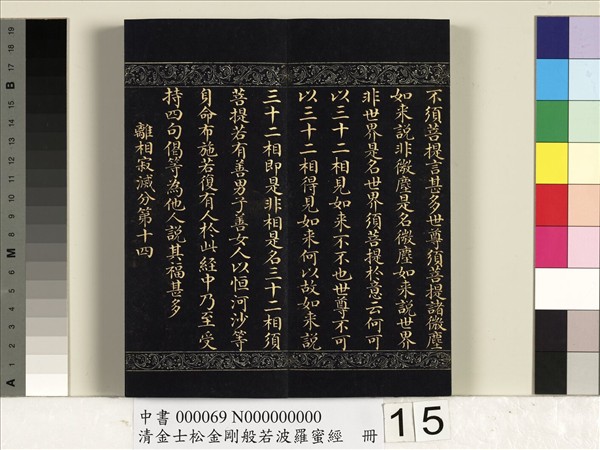 不須菩提言甚多世尊須菩提諸微塵
如来說非微塵是名微塵如来說世界
非世界是名世界須菩提於意云何可
以三十二相見如来不不也世尊不可
以三十二相得見如来何以故如来說
三十二相即是非相是名三十二相須
菩提若有善男子善女人以恒河沙等
身命布施若復有人於此經中乃至受
持四句偈等為他人說其福甚多
離相寂滅分第十四
中書 000069 N000000000
清金士松金剛般若波羅蜜經 冊
15
19
18
17
16
15
14
13
12
11
10
9
8
7
6
5
4
3
2
1
B
M
A